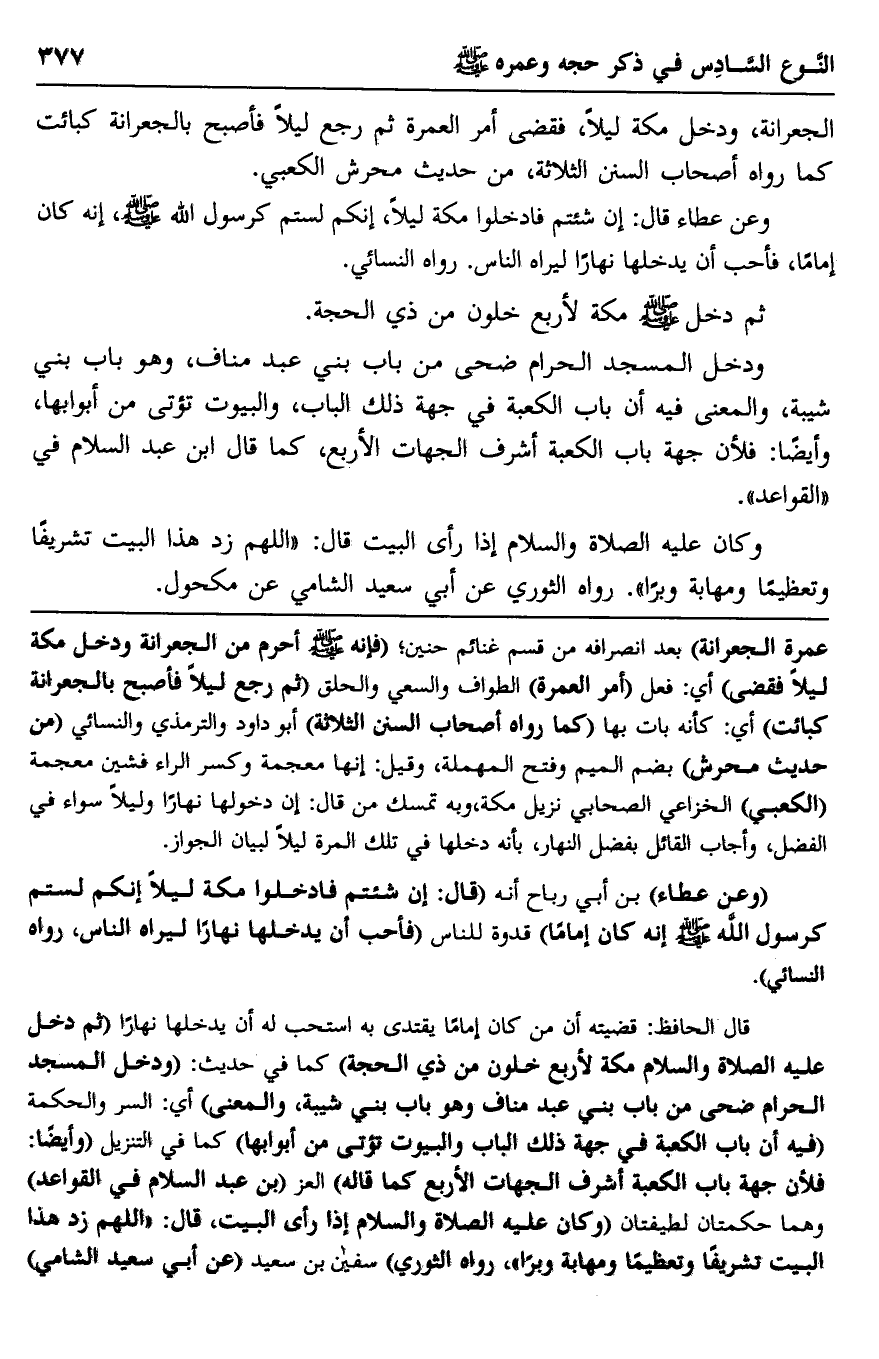 النَّوع السَّادِس في ذكر حجه وعمره ﷺ ٣٧٧
الجعرانة، ودخل مكة ليلاً، فقضى أمر العمرة ثم رجع ليلاً فأصبح بالجعرانة كبائت
كما رواه أصحاب السنن الثلاثة، من حديث محرش الكعبي.
وعن عطاء قال: إن شئتم فادخلوا مكة ليلاً، إنكم لستم كرسول الله ﷺ، إنه كان
إمامًا، فأحب أن يدخلها نهارًا ليراه الناس. رواه النسائي.
ثم دخل ﷺ مكة لأربع خلون من ذي الحجة.
ودخل المسجد الحرام ضحى من باب بني عبد مناف، وهو باب بني
شيبة، والمعنى فيه أن باب الكعبة في جهة ذلك الباب، والبيوت تؤتى من أبوابها،
وأيضًا: فلأن جهة باب الكعبة أشرف الجهات الأربع، كما قال ابن عبد السلام في
«القواعد».
وكان عليه الصلاة والسلام إذا رأى البيت قال: «اللهم زد هذا البيت تشريفًا
وتعظيمًا ومهابة وبرًا». رواه الثوري عن أبي سعيد الشامي عن مكحول.
عمرة الجعرانة) بعد انصرافه من قسم غنائم حنين؛ (فإنه ﷺ أحرم من الجعرانة ودخل مكة
ليلاً فقضى) أي: فعل (أمر العمرة) الطواف والسعي والحلق (ثم رجع ليلاً فأصبح بالجعرانة
كبائت) أي: كأنه بات بها (كما رواه أصحاب السنن الثلاثة) أبو داود والترمذي والنسائي (من
حديث محرش) بضم الميم وفتح المهملة، وقيل: إنها معجمة وكسر الراء فشين معجمة
(الكعبي) الخزاعي الصحابي نزيل مكة،وبه تمسك من قال: إن دخولها نهارًا وليلاً سواء في
الفضل، وأجاب القائل بفضل النهار، بأنه دخلها في تلك المرة ليلاً لبيان الجواز.
(وعن عطاء) بن أبي رباح أنه (قال: إن شئتم فادخلوا مكة ليلاً إنكم لستم
كرسول اللَّه ﷺ إنه كان إمامًا) قدوة للناس (فأحب أن يدخلها نهارًا ليراه الناس، رواه
النسائي).
قال الحافظ: قضيته أن من كان إمامًا يقتدى به استحب له أن يدخلها نهارًا (ثم دخل
عليه الصلاة والسلام مكة لأربع خلون من ذي الحجة) كما في حديث: (ودخل المسجد
الحرام ضحى من باب بني عبد مناف وهو باب بني شيبة، والمعنى) أي: السر والحكمة
(فيه أن باب الكعبة في جهة ذلك الباب والبيوت تؤتى من أبوابها) كما في التنزيل (وأيضًا:
فلأن جهة باب الكعبة أشرف الجهات الأربع كما قاله) العز (بن عبد السلام في القواعد)
وهما حكمتان لطيفتان (وكان عليه الصلاة والسلام إذا رأى البيت، قال: «اللهم زد هذا
البيت تشريفًا وتعظيمًا ومهابة وبرًا»، رواه الثوري) سفيٰن بن سعيد (عن أبي سعيد الشامي)